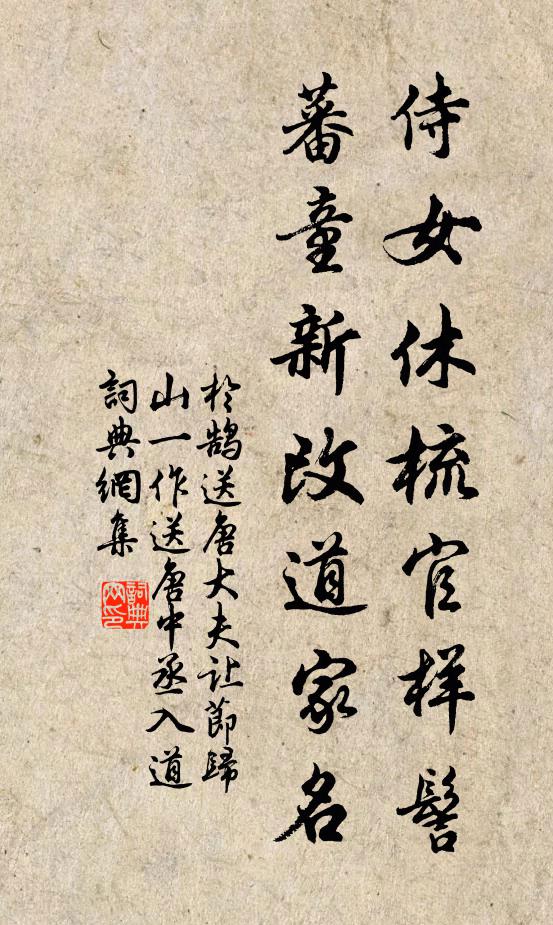 侍女休梳官样髻
蕃童新改道家名
於鵠送唐大夫让節歸
山一作送唐中丞入道
詞典網集
詞典网印